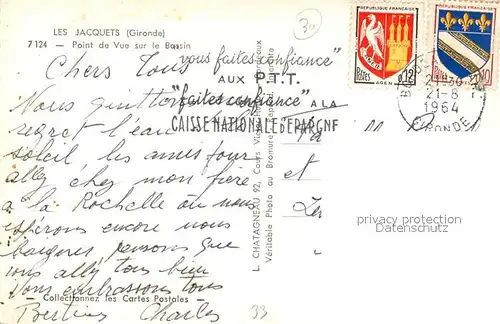 LES JACQUETS (Gironde)
7124 - Point de Vue sur le Bassin
30
RÉPUBLIQUE FRANÇAISE
RÉPUBLIQUE FRANÇAISE
POSTES 0,12
AGEN
"vous faites confiance"
AUX P.T.T.
"faites confiance" A LA
CAISSE NATIONALE D'EPARGNE
21H30
21-8
1964
GIRONDE
Chers Tous
Nous quittons
regret l'eau
soleil les amis pour
ally chez mon frère
a la Rochelle ou nous
espérons encore nous
baigner, pensons que
vous ally tous bien
Vous embrassons tous
Bertine Charles
L. CHATAGNEAU 92, Cours Victor
Véritable Photo au Bromure
et
privacy protection
Datenschutz
Collectionnez les Cartes Postales
33